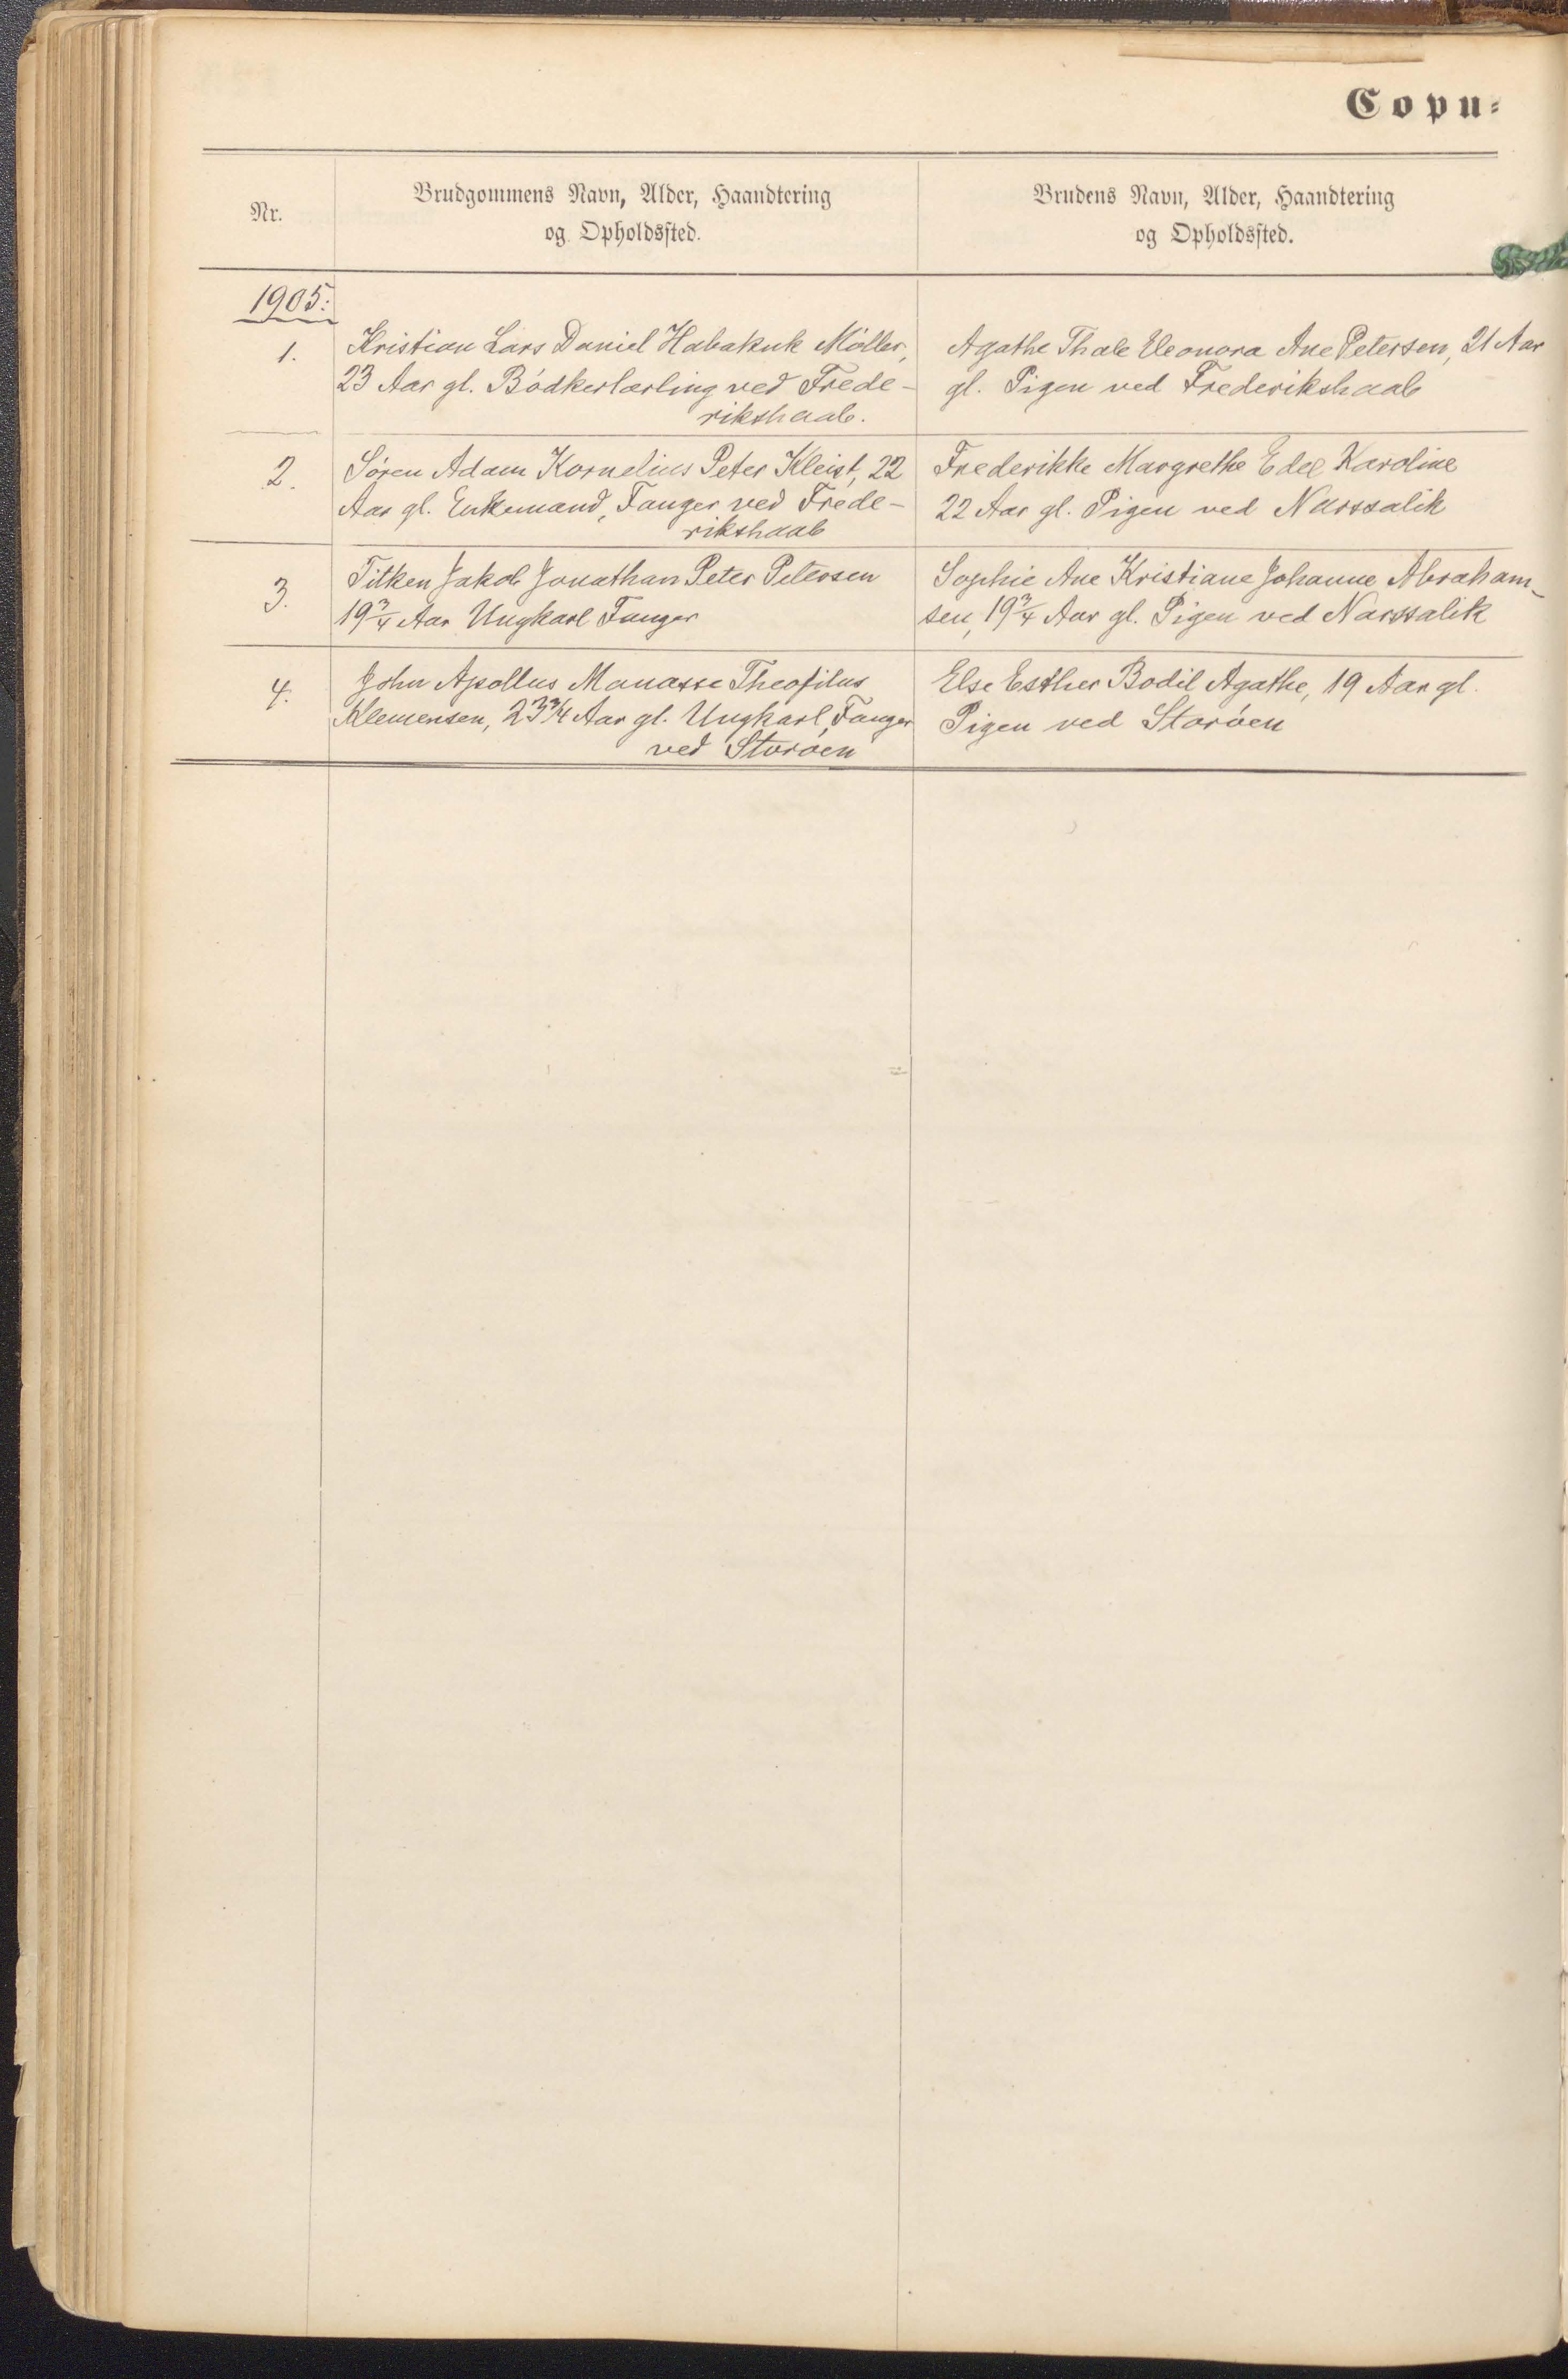 Copu-
Nr.
Brudgommens Navn, Alder, Haandtering
og Opholdssted.
Brudens Navn, Alder, Haandtering
og Opholdssted.
1905:
1.
Kristian Lars Daniel Habakuk Möller,
23 Aar gl. Bödkerlærling ved Frede-
rikshaab.
Agathe Thale Eleonora Ane Petersen, 21 Aar
gl. Pigen ved Frederikshaab
2.
Søren Adam Kornelius Peter Kleist, 22
Aar gl. Enkemand, Fanger ved Frede-
rikshaab
Frederikke Margrethe Edel Karoline
22 Aar gl. Pigen ved Narssalik
3.
Titken Jakob Jonathan Peter Petersen
19 3/4 Aar Ungkarl Fanger
Sophie Ane Kristiane Johanne Abraham-
sen, 19 3/4 Aar gl. Pigen ved Narssalik
4.
John Apollus Manasse Theofilus
Klemensen, 23 3/4 Aar gl. Ungkarl, Fanger
ved Storöen
Else Esther Bodil Agathe, 19 Aar gl.
Pigen ved Storöen